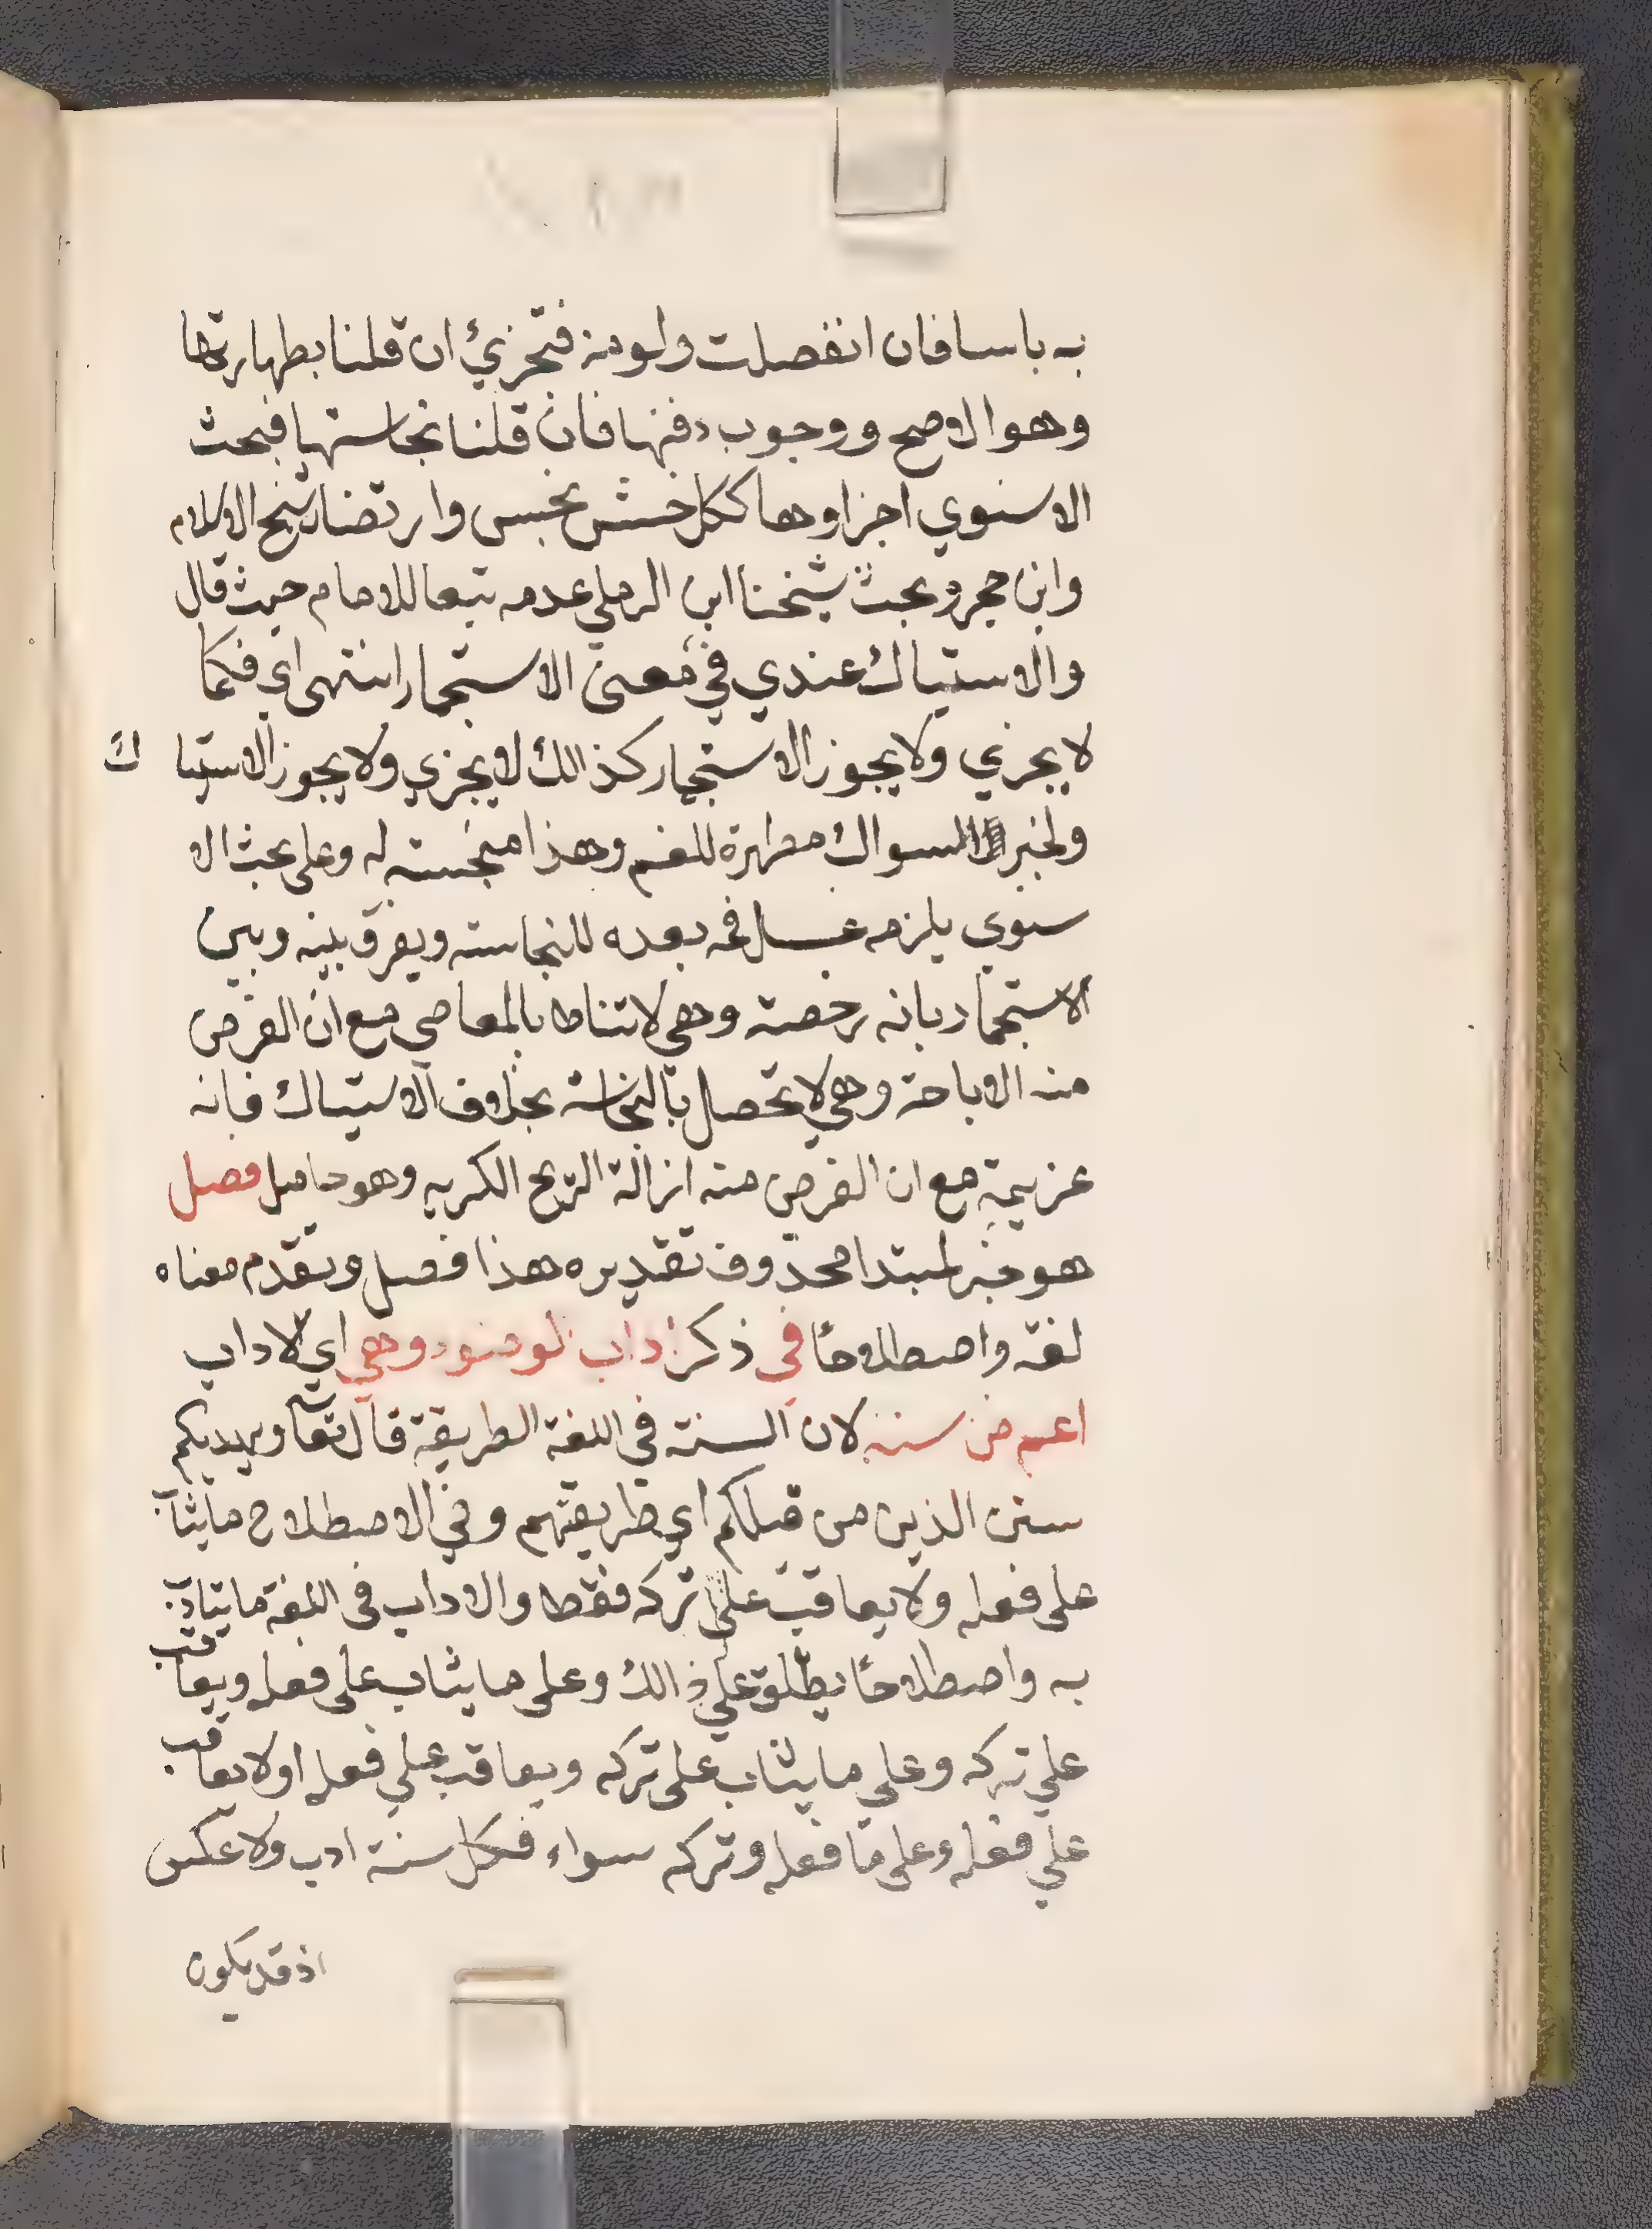 به باسا فان انفصلت ولو منه فتجزئ ان قلنا بطهارتها
وهو الاصح ووجوب دفنها فان قلنا بنجاستها فبحث
الاسنوي اجزاوها ككل خشن نجس وارتضاه شيخ الاسلام
وابن حجر وبحث شيخنا ابن الرملي عدمه تبعا للامام حيث قال
والاستياك عندي في معنى الاستجمار انتهى اي فكما
لا يجزي ولا يجوز الاستجمار كذالك لا يجزي ولا يجوز الاستياك
ولخبر السواك مطهرة للفم وهذا منجسته له وعلى بحث الا
سنوي يلزمه غسل فمه بعده للنجاسته ويفرق بينه وبين
الاستجمار بانه رخصته وهي لا تناط بالمعاصي مع ان الغرض
منه الاباحة وهي لا تحصل بالنجاسة بخلاف الاستياك فانه
عزيمة مع ان الغرض منه ازالة الريح الكريه وهو حاصل فصل
هو خبر لمبتدا محذوف تقديره هذا فصل وتقدم معناه
لغة واصطلاحًا في ذكر اداب الوضوء وهي اي الاداب
اعم من سننه لان السنة في اللغة الطريقة قال تعا ويهديكم
سنن الذين من قبلكم اي طريقتهم وفي الاصطلاح ما يثاب
على فعله ولا يعاقب على تركه فقط والاداب في اللغة ما يتادب
به واصطلاحًا يطلق على ذالك وعلى ما يثاب على فعله ويعاقب
علي تركه وعلي ما يثاب على تركه ويعاقب علي فعله او لا يعاقب
علي فعله وعلى ما فعله وتركه سواء فكل سنة ادب ولا عكس
اذ قد يكون